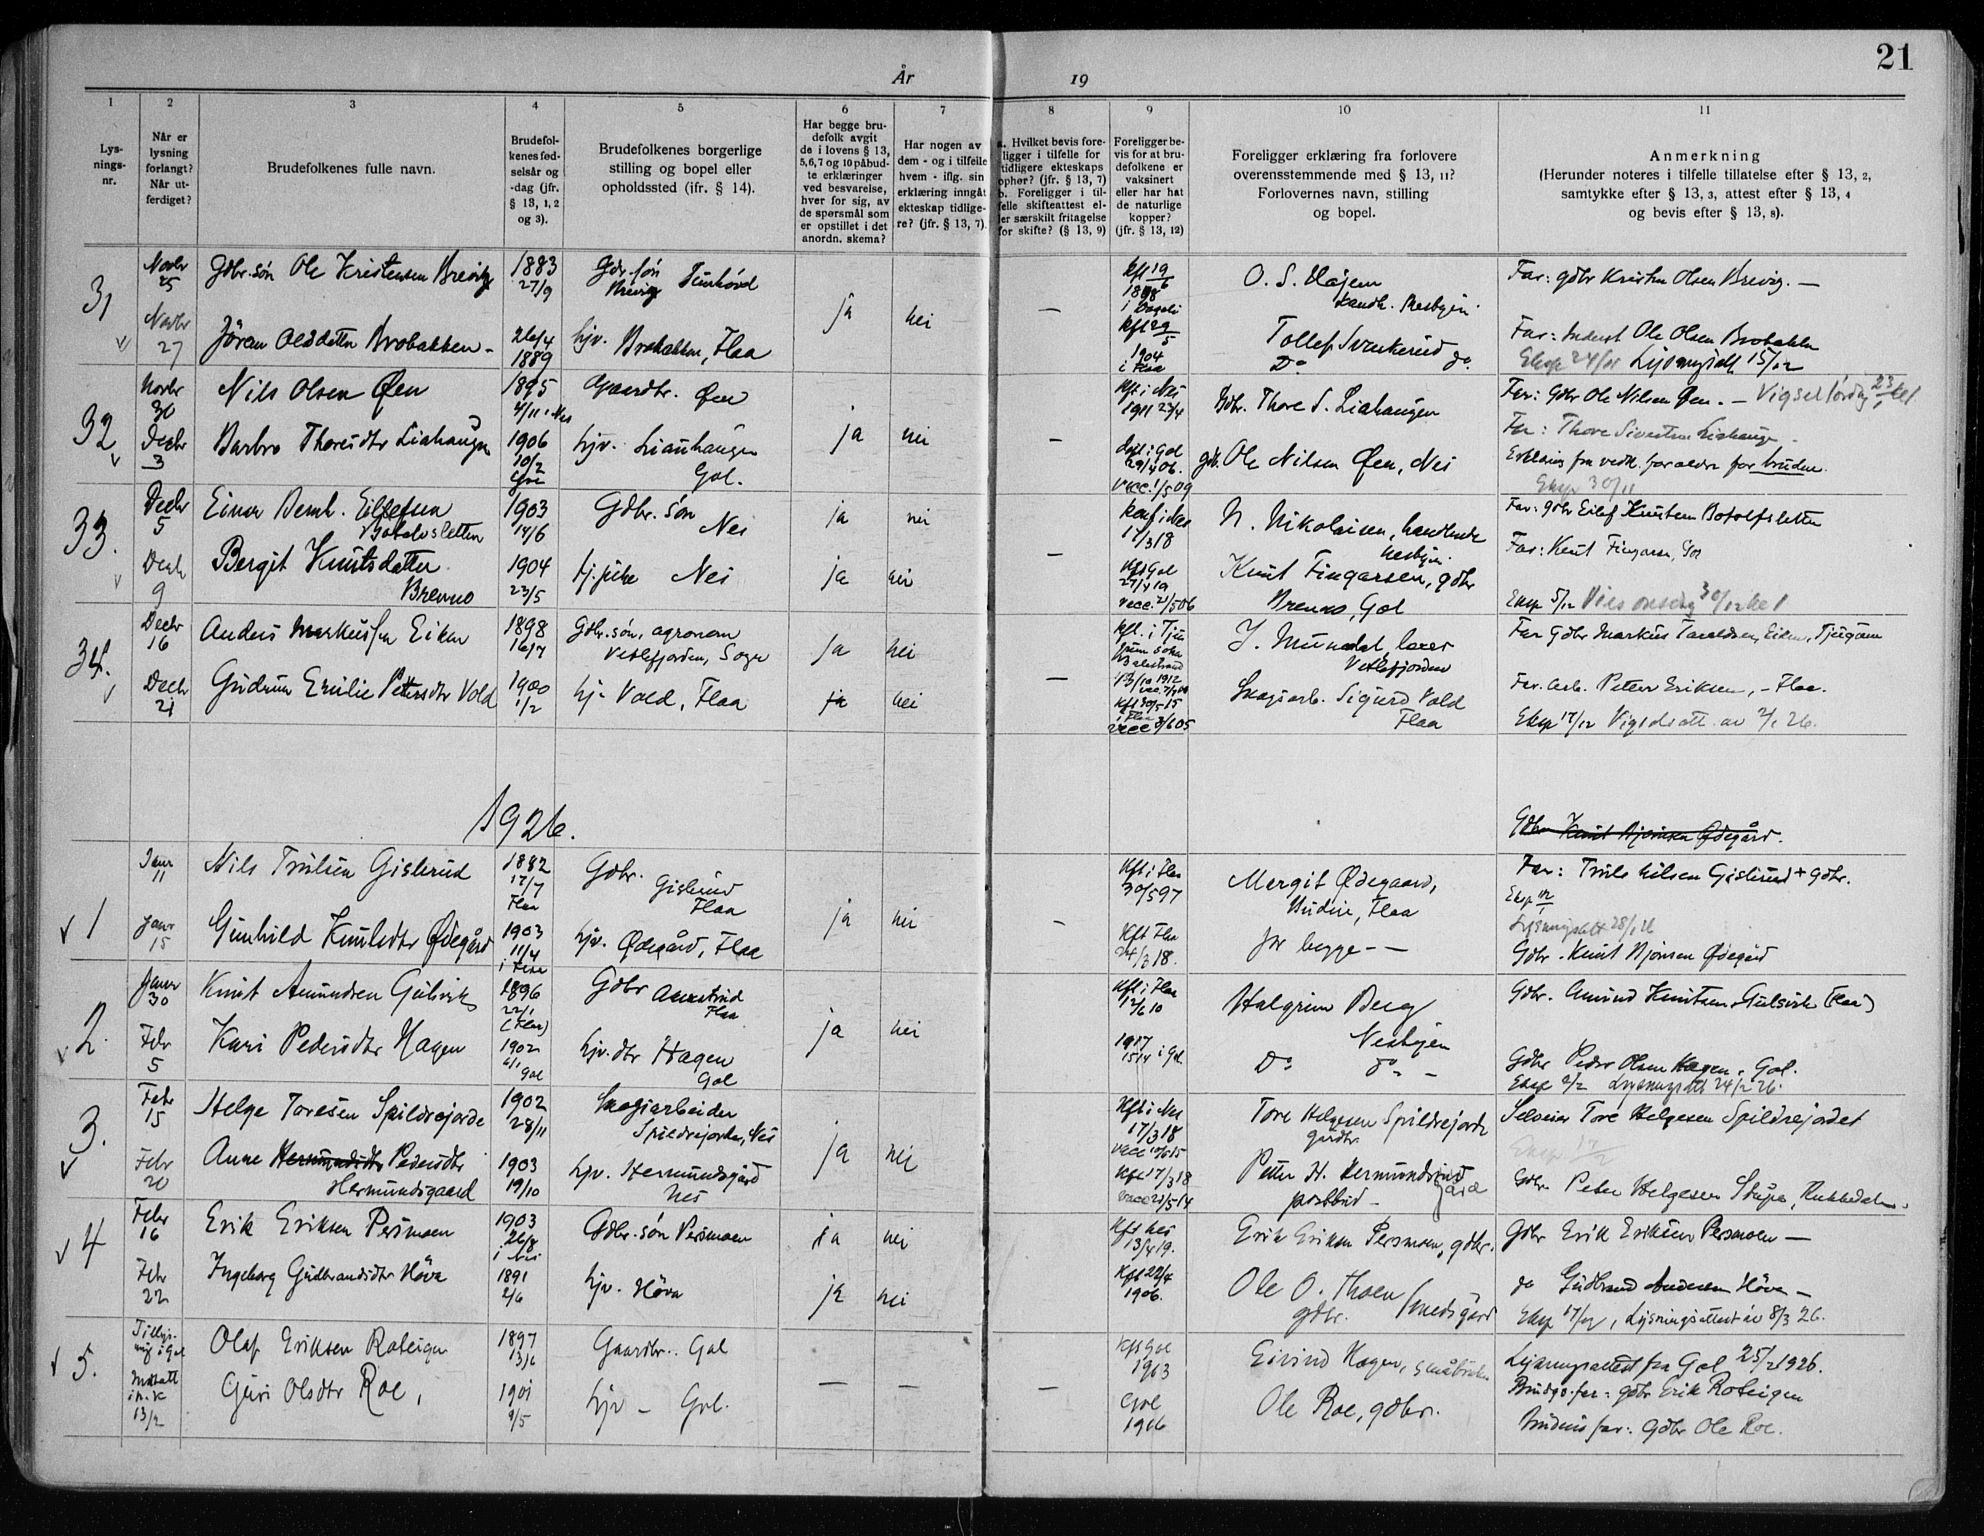 21
År 19
1 2 3 4 5 6 7 8 9 10 11
Lys-
nings-
nr.
Når er
lysning
forlangt?
Når ut-
ferdiget?
Brudefolkenes fulle navn.
Brudefol-
kenes fød-
selsår og
-dag (jfr.
§ 13, 1, 2
og 3).
Brudefolkenes borgerlige
stilling og bopel eller
opholdssted (ifr. § 14).
Har begge bru-
defolk avgit
de i lovens § 13,
5,6,7 og 10 påbud-
te erklæringer
ved besvarelse,
hver for sig, av
de spørsmål som
er opstillet i det
anordn. skema?
Har nogen av
dem - og i tilfelle
hvem - iflg. sin
erklæring inngåt
ekteskap tidlige-
re? (jfr. § 13, 7).
a. Hvilket bevis fore-
ligger i tilfelle for
tidligere ekteskaps
ophør? (jfr. § 13, 7)
b. Foreligger i til-
felle skifteattest el-
ler særskilt fritagelse
for skifte? (§ 13, 9)
Foreligger be-
vis for at bru-
defolkene er
vaksinert
eller har hat
de naturlige
kopper?
(jfr. § 13, 12)
Foreligger erklæring fra forlovere
overensstemmende med § 13, 11?
Forlovernes navn, stilling
og bopel.
Anmerkning
(Herunder noteres i tilfelle tillatelse efter § 13, 2,
samtykke efter § 13, 3, attest efter § 13, 4
og bevis efter § 13, 8).
31
Novbr 25 Gdbr. søn Ole Kristensen Brevig 1883 27/9 Brevig ja nei — O. S. Far: gdbr Kristen Olsen Brevig. —
Novbr 27 Jøran Olsdatter Brobakken - 26/4 1889 hjv. Brobakken, Flaa 1904 i Flaa Tollef Far: Ole Olsen Brobakken
Eksp 24/11 Lysningsatt 15/12
32
Novbr 30 Nils Olsen Øen 1895 4/11 i Nes Gaardbr. Øen ja nei — Kft. i Nes 1911 Gdbr. Thore S. Liahaugen Far: Gdbr Ole Nilsen Øen. — Vigsel lørdag
Decbr 3 Barbro Thoresdtr Liahaugen 1906 10/2 Gol hjv. Liahaugen Gol. døbt i Gol 29/4 06. vacc. 1/5 09 gdb. Ole Nilsen Øen, Nes Far: Thore Sivertsen Liahaugen
Erklæring fra vedk. foraldre for bruden.
Eksp 30/11
33.
Decbr 5 Einar Bernh. Eilefsen 1903 14/6 Gdbr. søn Nes ja nei — konf i Nes 17/3 18 N. Nikolaisen, handlende Nesbyen Far: gdbr Eilef Knutsen Botolfsletten
Decbr 9 Bergit Knutsdatter Brenno 1904 23/5 tj. pike Nes ja nei Kft Gol 27/4 19 vacc. 21/5 06 Knut Fingarsen, gdbr Brenno, Gol Far: Knut Fingarsen, Gol
Eksp 5/12 Vies onsdag 30/12 kl 1
34.
Decbr 16 Anders Markussen Eiken 1898 16/7 Gdbr. søn, agronom Vetlefjorden, Sogn ja nei — Kft. i Balestrand 13/10 1912 J. Mundal, lærer Vetlefjorden Far Gdbr Markus Eiken, Tjugum
Decbr 21 Gudrun Emilie Petersdtr Vold 1900 1/2 hj. Vold, Flaa ja nei kft 30/5 15 i Flaa vacc 3/6 05 Skogsarb. Sigurd Vold Flaa Far. Arb. Petter Eriksen, - Flaa.
Eksp 17/12 Vigselsatt. av 2/1 26.
1926.
Gdbr Knut Bjørnsen Ødegård.
1
Janr 11 Nils Trulsen Gislerud 1882 17/7 Flaa Gdbr. Gislerud Flaa ja nei — Kft. i Flaa 30/5 97 Mergit Ødegaard, Budeie, Flaa Far: Truls Nilsen Gislerud + gdbr.
Eksp
Lysningsatt 28/1 26
Janr 15 Gunhild Knutsdtr Ødegård 1903 11/4 i Flaa hjv. Ødegård, Flaa Kft Flaa 24/3 18. for begge - — Gdbr. Knut Bjørnsen Ødegård
2.
Janr 30 Knut Amundsen Gulsvik 1896 22/1 (Flaa) Gdbr Flaa ja nei Kft i Flaa 12/6 10 Halgrim Berg Nesbyen Gdbr. Amund Knutsen Gulsvik (Flaa)
Febr 5 Kari Pedersdtr Hagen 1902 6/1 Gol hjv. dtr Hagen Gol 1917 15/4 i Gol. Do Do - Gdbr Peder Olsen Hagen, Gol.
Eksp 2/2 Lysningsatt 24/2 26.
3.
Febr 15 Helge Toresen Spildrejorde 1902 28/11 Skogsarbeider Spildrejorden, Nes ja nei Kft i Nes 17/3 18 Tore Helgesen Spildrejorde gardbr. Selveier Tore Helgesen Spildrejordet
Eksp 17/2
Febr 20 Anne Hermundsdtr Pedersdtr Hermundsgaard 1903 19/10 hjv. Hermundsgård Nes Kft 17/3 18 vacc 21/5 14 Petter H. Hermundsgård postbud - Gdbr. Peter Helgesen
4
Febr 16 Erik Eriksen Persmoen 1903 26/8 i Nes Gdbr. søn Persmoen ja nei Kft Nes 13/4 19. Erik Eriksen Persmoen, gdbr. Gdbr Erik Eriksen Persmoen —
Febr 22 Ingeborg Gudbrandsdtr Høva 1891 2/6 hjv. Høva ja nei Kft 22/4 1906. Ole O. Thoen gdbr. Smedsgård do Gudbrand Andersen Høva —
Eksp 17/2, Lysningsattest av 8/3 26.
5.
Tillys- ning i Gol Olaf Eriksen Roteigen 1897 13/6 Gaardbr. Gol — — — Kft Gol 1913 Eivind Hagen, småbruker Lysningsattest fra Gol 25/2 1926.
13/2 Guri Olsdtr Roe, 1901 9/5 hjv — Gol. Gol 1916 Ole Roe, gdbr. Brudgs. far: gdbr Erik Roteigen
Brudens far: Gdbr Ole Roe.